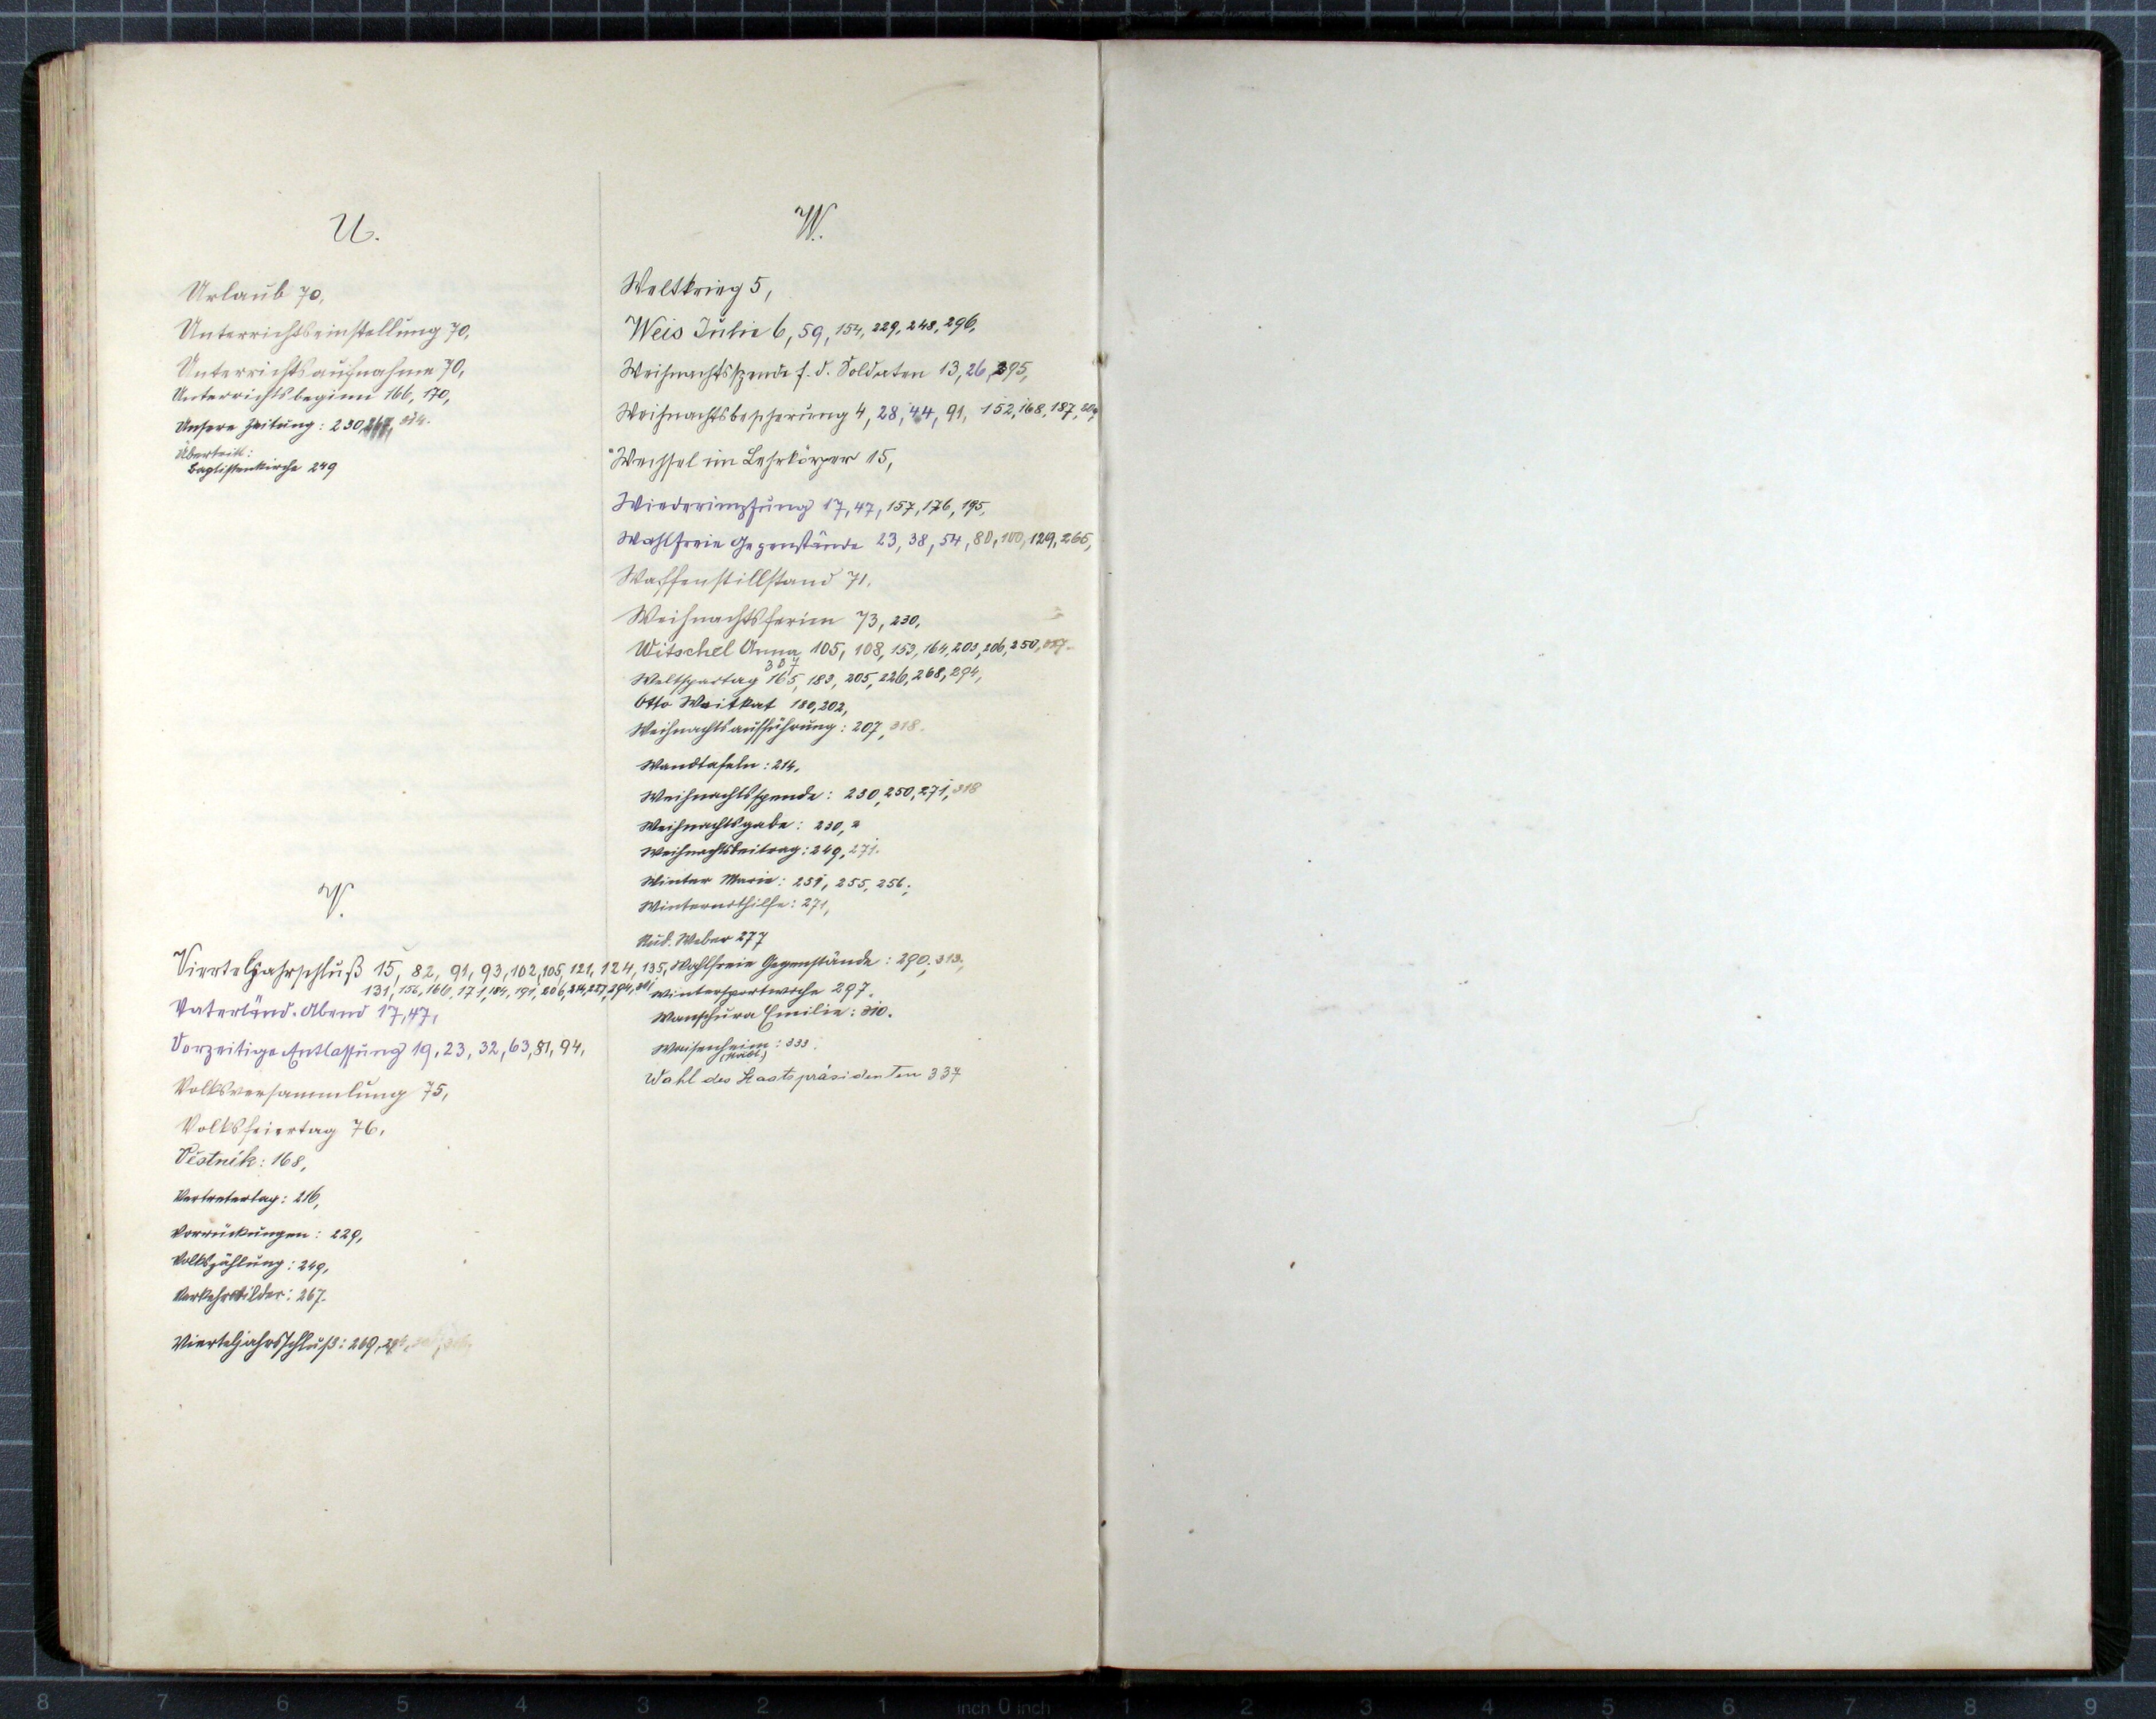 U.
Urlaub 70,
Unterrichtseinstellung 70,
Unterrichtsaufnahme 70,
Unterrichtsbeginn 166, 170,
Unsere Zeitung: 230,
Übertritt:
Baptistenkirche 249
V.
Vierteljahrschluß 15, 82, 91, 93, 102, 105, 121, 124, 135,
131, 156, 166, 171, 184, 191, 206, 214, 257, 294,
Vaterländ. Abend 17, 47,
Vorzeitige Entlassung 19, 23, 32, 63, 81, 94,
Volksversammlung 75,
Volksfeiertag 76,
Věstník: 168,
Vertretertag: 216,
Vorrückungen: 229,
Volkszählung: 249,
Verkehrsbilder: 267.
Vierteljahrsschluß: 269,
W.
Weltkrieg 5,
Weis Julie 6, 59, 154, 229, 248, 296,
Weihnachtsspende f. d. Soldaten 13, 26, 295,
Weihnachtsbescherung 4, 28, 44, 91, 152, 168, 187,
Wechsel im Lehrkörper 15,
Wiederimpfung 17, 47, 157, 176, 195,
Wahlfreie Gegenstände 23, 38, 54, 80, 100, 129, 265,
Waffenstillstand 71,
Weihnachtsferien 73, 230,
Witschel Anna 105, 108, 153, 164, 203, 206, 250,
307
Weltspartag 165, 183, 205, 226, 268, 294,
Otto Waitkat 180, 202,
Weihnachtsaufführung: 207, 318.
Wandtafeln: 214,
Weihnachtsspende: 230, 250, 271, 318
Weihnachtsgabe: 230,
Weihnachtsbeitrag: 249, 271.
Winter Marie: 251, 255, 256;
Winternothilfe: 271,
Rud. Weber 277
Wahlfreie Gegenstände: 290, 313,
Wintersportwoche 297.
Wanschura Emilie: 310.
Waisenheim: 333.
Wahl des Staatspräsidenten 337